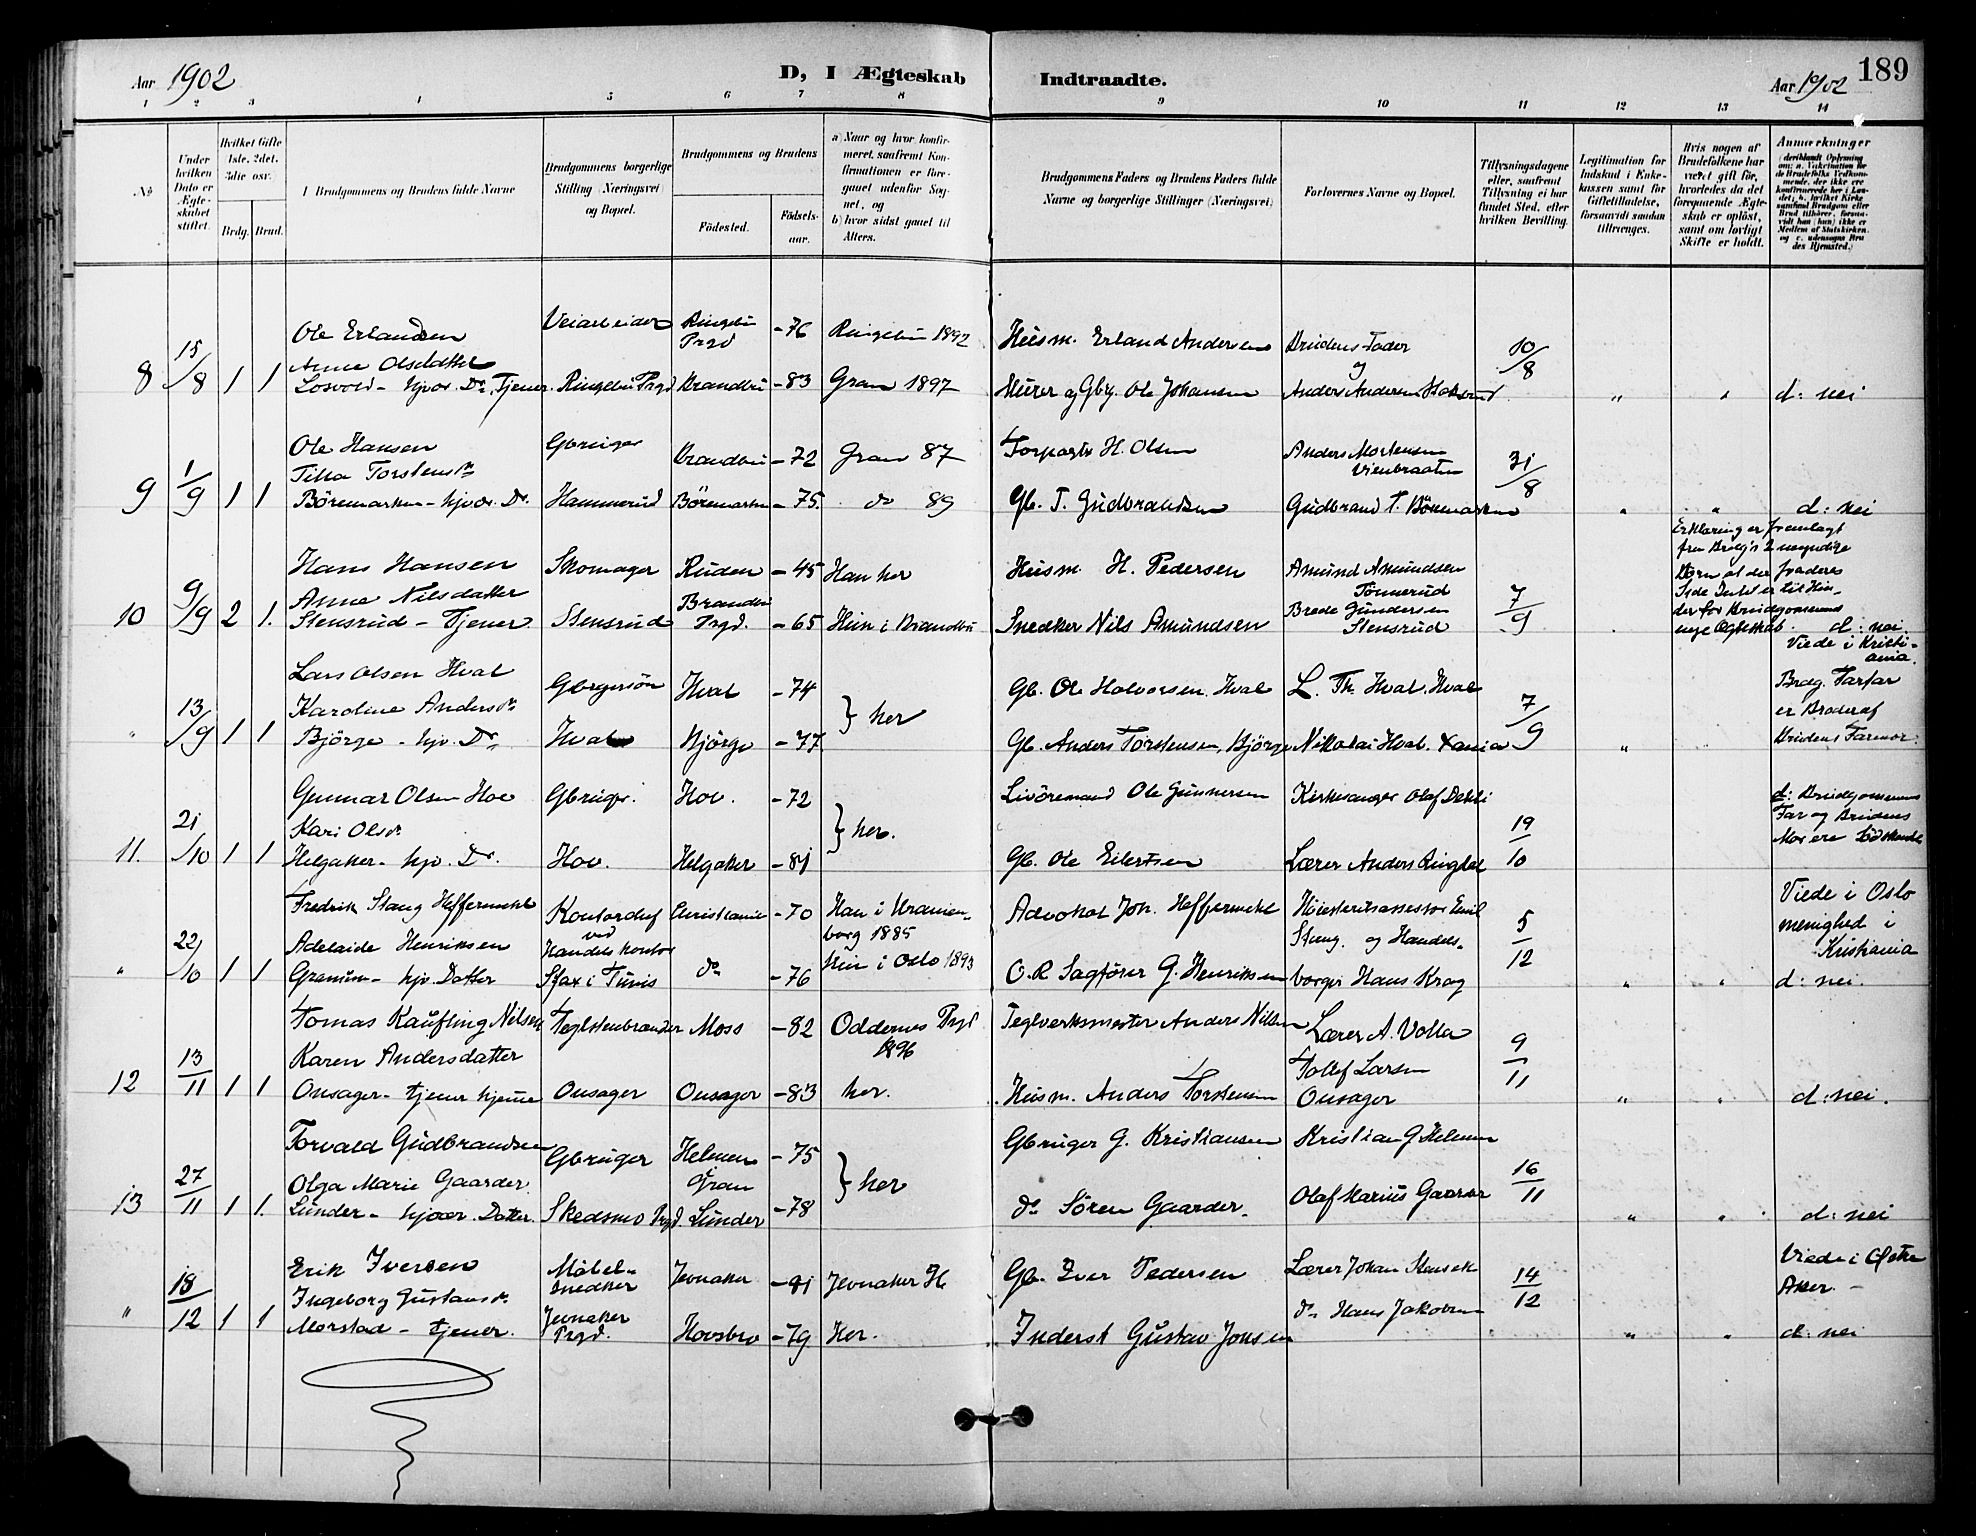 Aar 1902
D, I Ægteskab Indtraadte.
Aar 1902
189
1 2 3 4 5 6 7 8 9 10 11 12 13 14
No
Under hvilken Dato er Ægteskabet stiftet.
Hvilket Gifte 1ste, 2det, 3die osv.
Brdg. Brud.
Brudgommens og Brudens fulde Navne
Brudgommens borgerlige Stilling (Næringsvei) og Bopæl.
Brudgommens og Brudens
Fødested.
Födsels-aar.
a) Naar og hvor konfirmeret, saafremt Konfirmationen er foregaaet udenfor Sognet, og
b) hvor sidst gaaet til Alters.
Brudgommens Faders og Brudens Faders fulde Navne og borgerlige Stillinger (Næringsvei)
Forlovernes Navne og Bopæl.
Tillysningsdagene eller, saafremt Tillysning ei har fundet Sted, efter hvilken Bevilling.
Legitimation for Indskud i Enkekassen samt for Giftetilladelse, forsaavidt saadan tiltrænges.
Hvis nogen af Brudefolkene har været gift før, hvorledes da det foregaaende Ægteskab er opløst, samt om lovligt Skifte er holdt.
Anmerkninger
8 15/8 1 1
Ole Erlandsen Veiarbeider Ringebu Prgd -76 Ringebu 1892 Husm. Erland Andersen Brudens Fader 10/8
Anne Olsdatter og
Losvold - hjvær. Dr., Tjener. Ringebu Prgd Brandbu -83 Gran 1897 Murer og Gbrg. Ole Johansen Anders Andersen " " d: nei
9 1/9 1 1
Ole Hansen Gbruger Brandbu -72 Gran 87 Forpagter H. Olsen Anders Mortensen 31/8
Tilla Torstensdr Vienbraaten
Böremarken - hjvær. Dr. Hammerud Böremarken -75. do 89 Gb. T. Gudbrandsen Gudbrand T. Böremarken " " d: nei
10 9/9 2 1.
Hans Hansen Skomager Ruden -45 Han her Husm. H. Pedersen Amund Amundsen 7/9
Anne Nilsdatter Brandbu Tönnerud
Stensrud - Tjener Stensrud Prgd. -65 Hun i Brandbu Snedker Nils Amundsen Brede Gundersen Stensrud
Erklæring er fremlagt
fra Brudg's 2 myndige
Börn at der fra deres
Side Intet er til Hin-
der for Brudgommens
nye Ægteskab. d: nei
" 13/9 1 1
Lars Olsen Hval Gbrgersön Hval -74 } her Gb. Ole Halvorsen, Hval L. Th. Hval, Hval 7/9
Karoline Andersdr
Björge - hjv. Dr. Hval Björge -77 Gb. Anders Torstensen, Björge Nikolai Hval, Xania "
Viede i Kristi-
ania.
Brdg. Farfar
er Broder af
Brudens Farmor.
11. 21/10 1 1
Gunnar Olsen Hov Gbruger. Hov. -72 } her. Livöremand Ole Gunnersen Kirkesanger Olaf Dehli 19/10
Kari Olsdr
Helgaker - hjv. Dr. Hov. Helgaker -81 Gb. Ole Eilertsen Lærer Anders
d: Brudgommens
Far og Brudens
Mor ere Södskende
" 22/10 1 1
Fredrik Stang Heffermehl Kontorchef Christiania -70 Han i Uranien-borg 1885 Advokat Joh. Heffermehl Höiesteretsassessor Emil 5/12
Adelaide Henriksen ved Handelskontor Stang og Handels-
Granum - hjv. Datter Sfax i Tunis do -76 Hun i Oslo 1893 O.R. Sagförer G. Henriksen borger Hans Krag " "
Viede i Oslo
menighed i
Kristiania
d: nei.
12 13/11 1 1
Tomas Kaufling Nilsen Teglstenbrænder Moss -82 Oddernes Prgd 1896 Teglverksmester Anders Nilsen Lærer A. Volla 9/11
Karen Andersdatter Tollef Larsen
Onsager - tjener hjemme Onsager Onsager -83 her. Husm. Anders Torstensen Onsager " " d: nei.
13 27/11 1 1.
Torvald Gudbrandsen Gbruger Helmen Gran -75 } her Gbruger G. Kristiansen Kristian G Helmen 16/11
Olga Marie Gaarder
Lunder - hjvær. Datter. Skedsmo Prgd. Lunder -78 do Sören Gaarder. Olaf Marius Gaarder " " d: nei
" 18/12 1 1
Erik Iversen Möbel-snedker Jevnaker -81 Jevnaker Gb. Iver Pedersen Lærer Johan 14/12
Ingeborg Gustavsdr Jevnaker do Hans Jakobsen
Morstad - tjener. Prgd. Hovsbro -79 Her. Inderst Gustav Jonsen " "
Viede i
Aker. -
d: nei